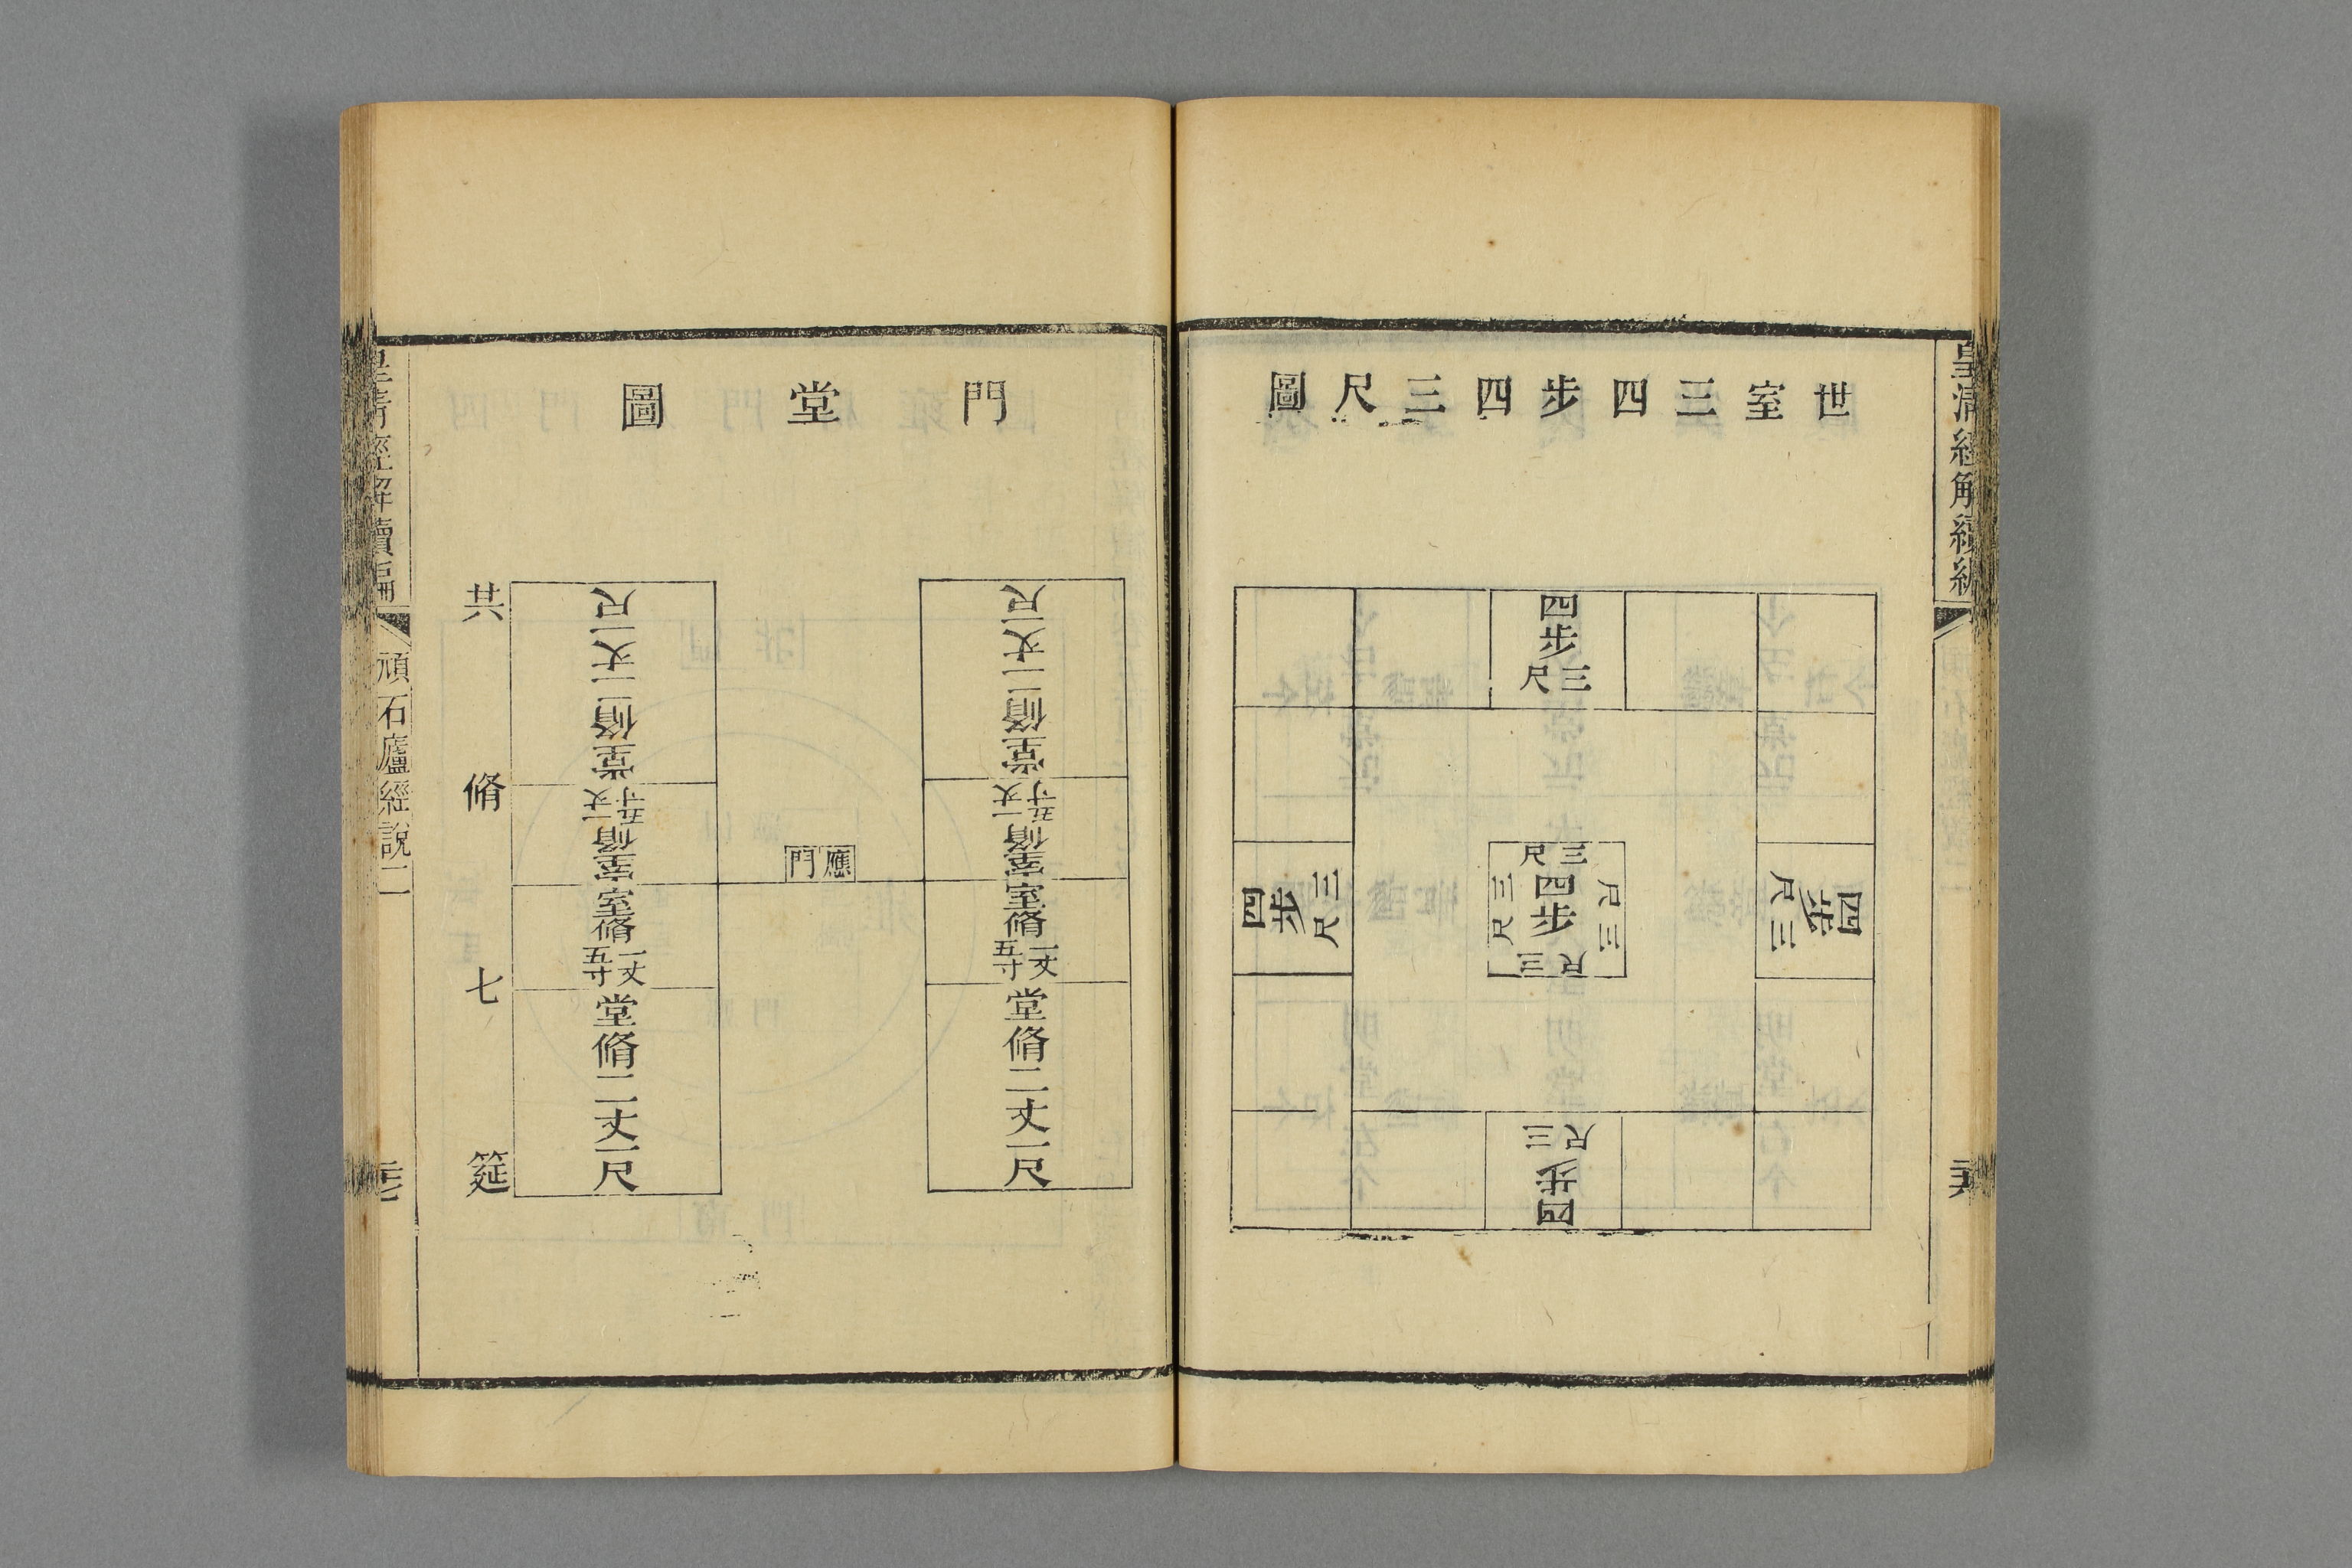 皇清經解續編
世室三四步四三尺圖
四步三尺
四步三尺
四步三尺
三尺
三尺
三尺
四步三尺
四步三尺
門堂圖
堂脩二丈一尺
室脩一丈五寸
室脩一丈五寸
堂脩二丈一尺
應門
堂脩二丈一尺
室脩一丈五寸
室脩一丈五寸
堂脩二丈一尺
共脩七筵
皇清經解續編
頑石廬經說二